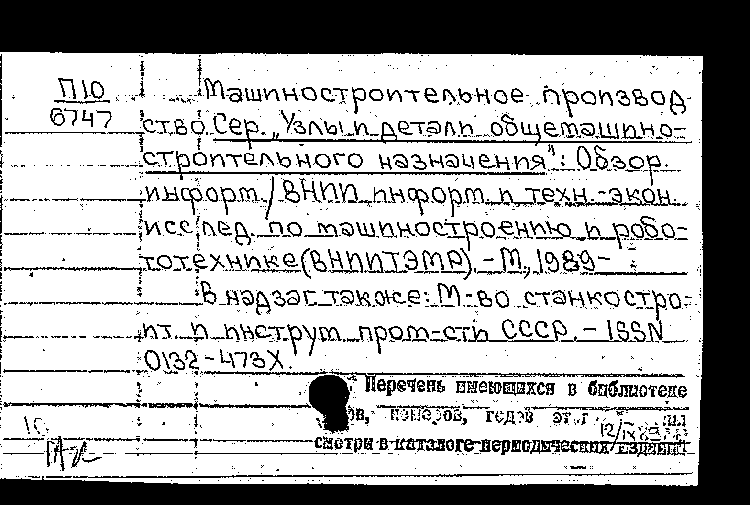 П10
6747
Машиностроительное производ-
ство. Сер. „Узлы и детали общемашино-
строительного назначения": Обзор.
информ./ВНИИ информ. и техн.-экон.
исслед. по машиностроению и робо-
тотехнике (ВНИИТЭМР). - М., 1989-
В надзаг. также: М-во станкостро-
ит. и инструм. пром-сти СССР. - ISSN
0132-473X.
Перечень имеющихся в библиотеке
номеров, годов
12/IV 89
смотри в каталоге периодических изданий